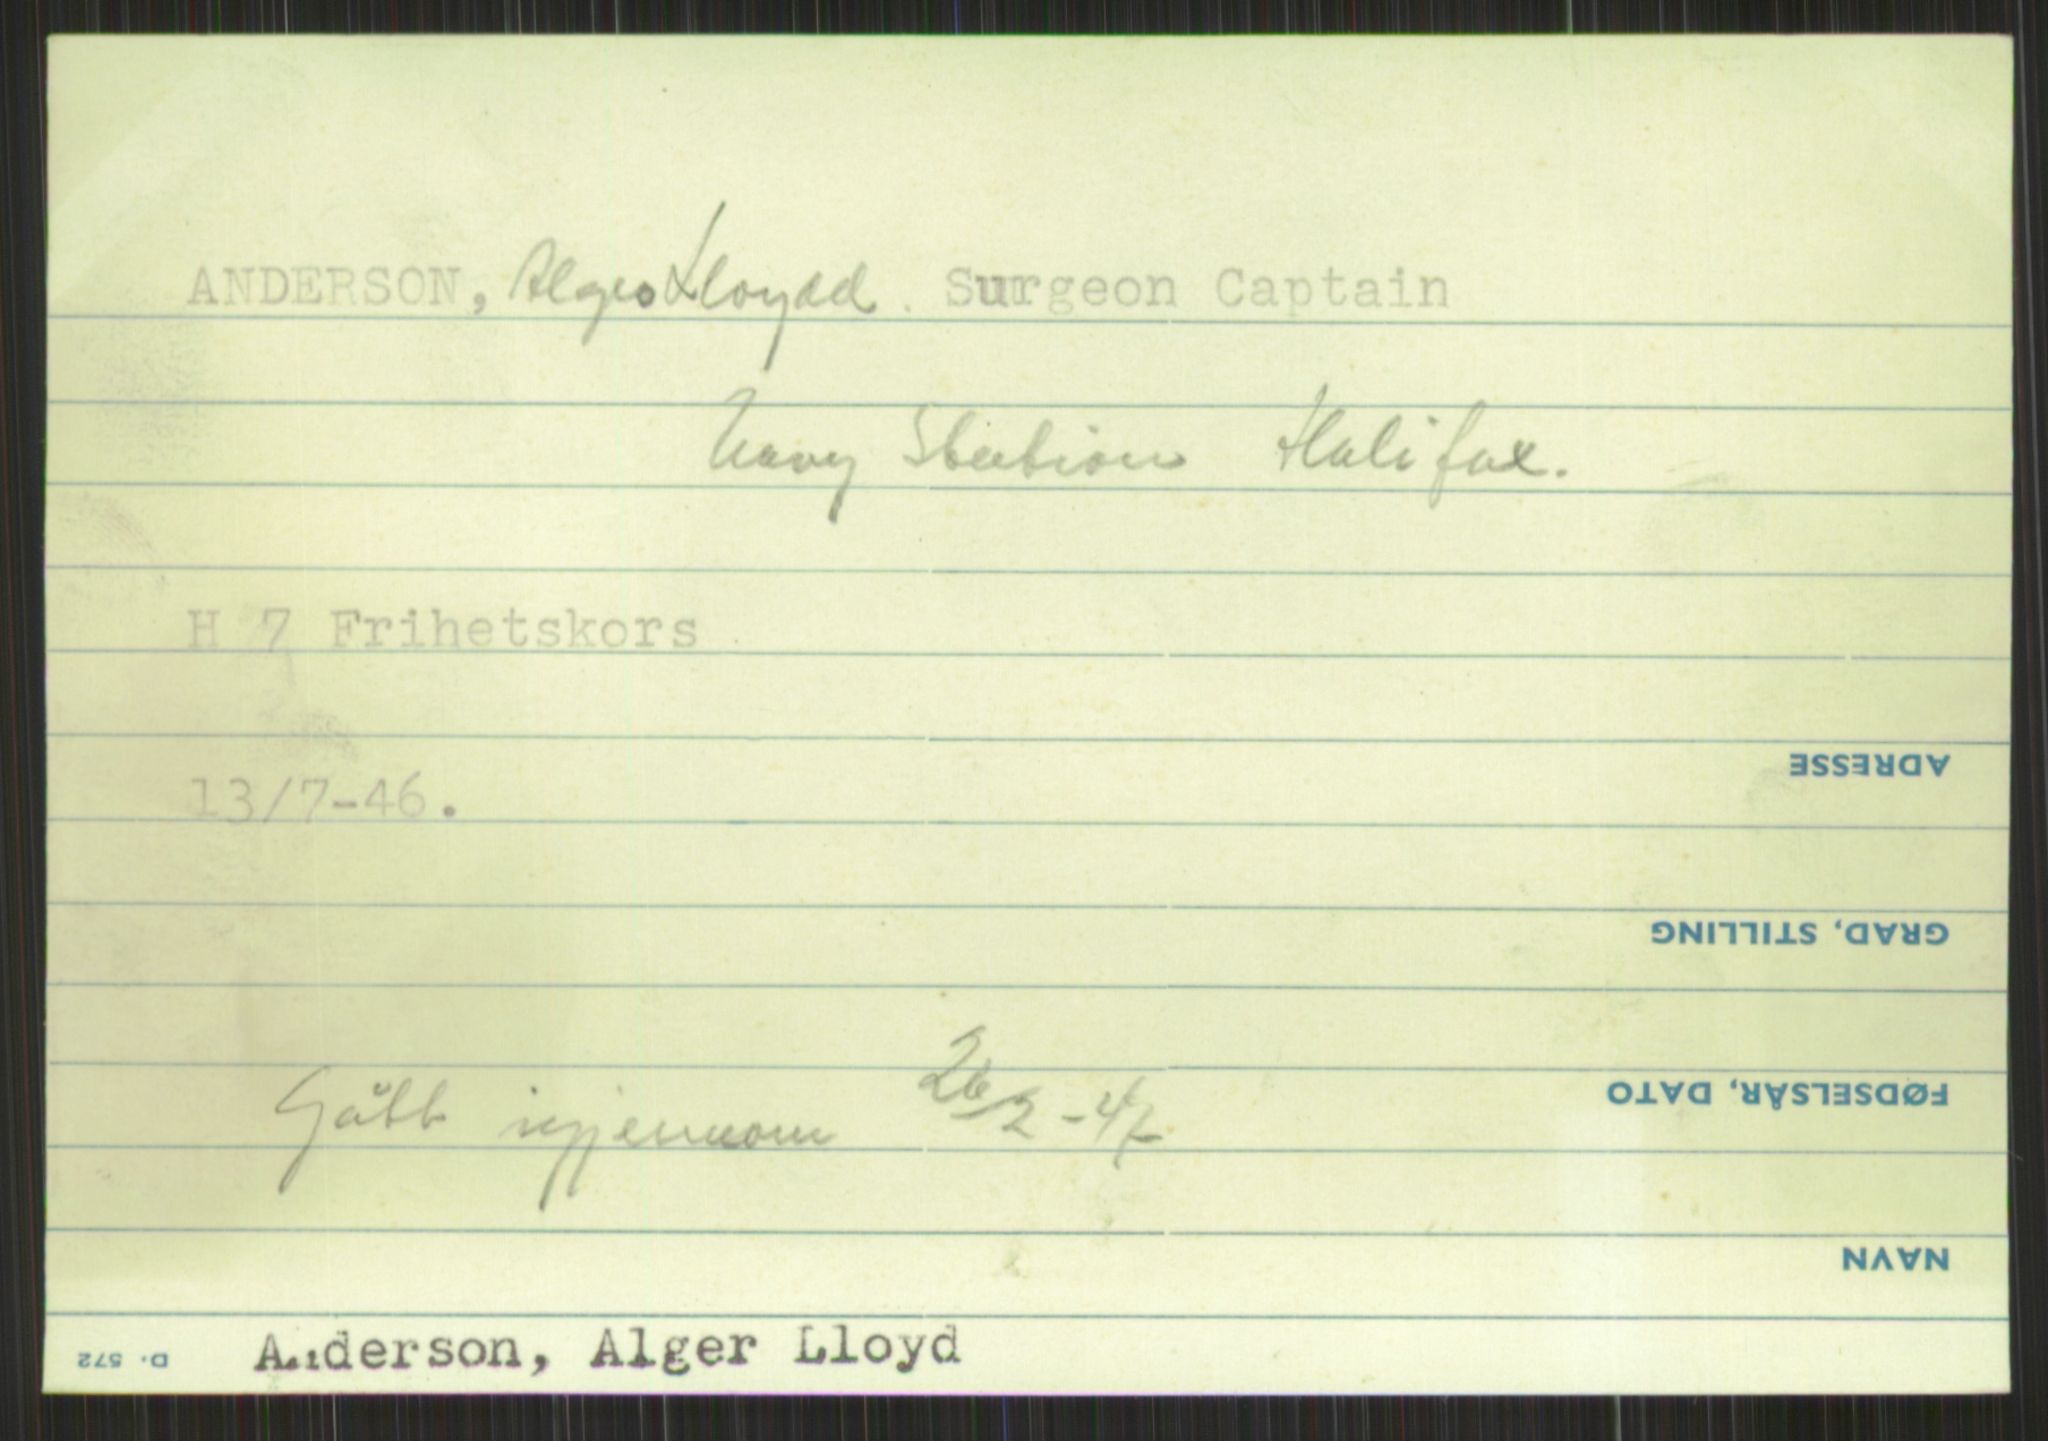 ANDERSON, Alger Lloydd. Surgeon Captain
Navy Station Halifax.
H 7 Frihetskors
ADRESSE
13/7-46.
GRAD, STILLING
FØDSELSÅR, DATO
Gått igjennom 26/2-47
NAVN
D. 572 Anderson, Alger Lloyd